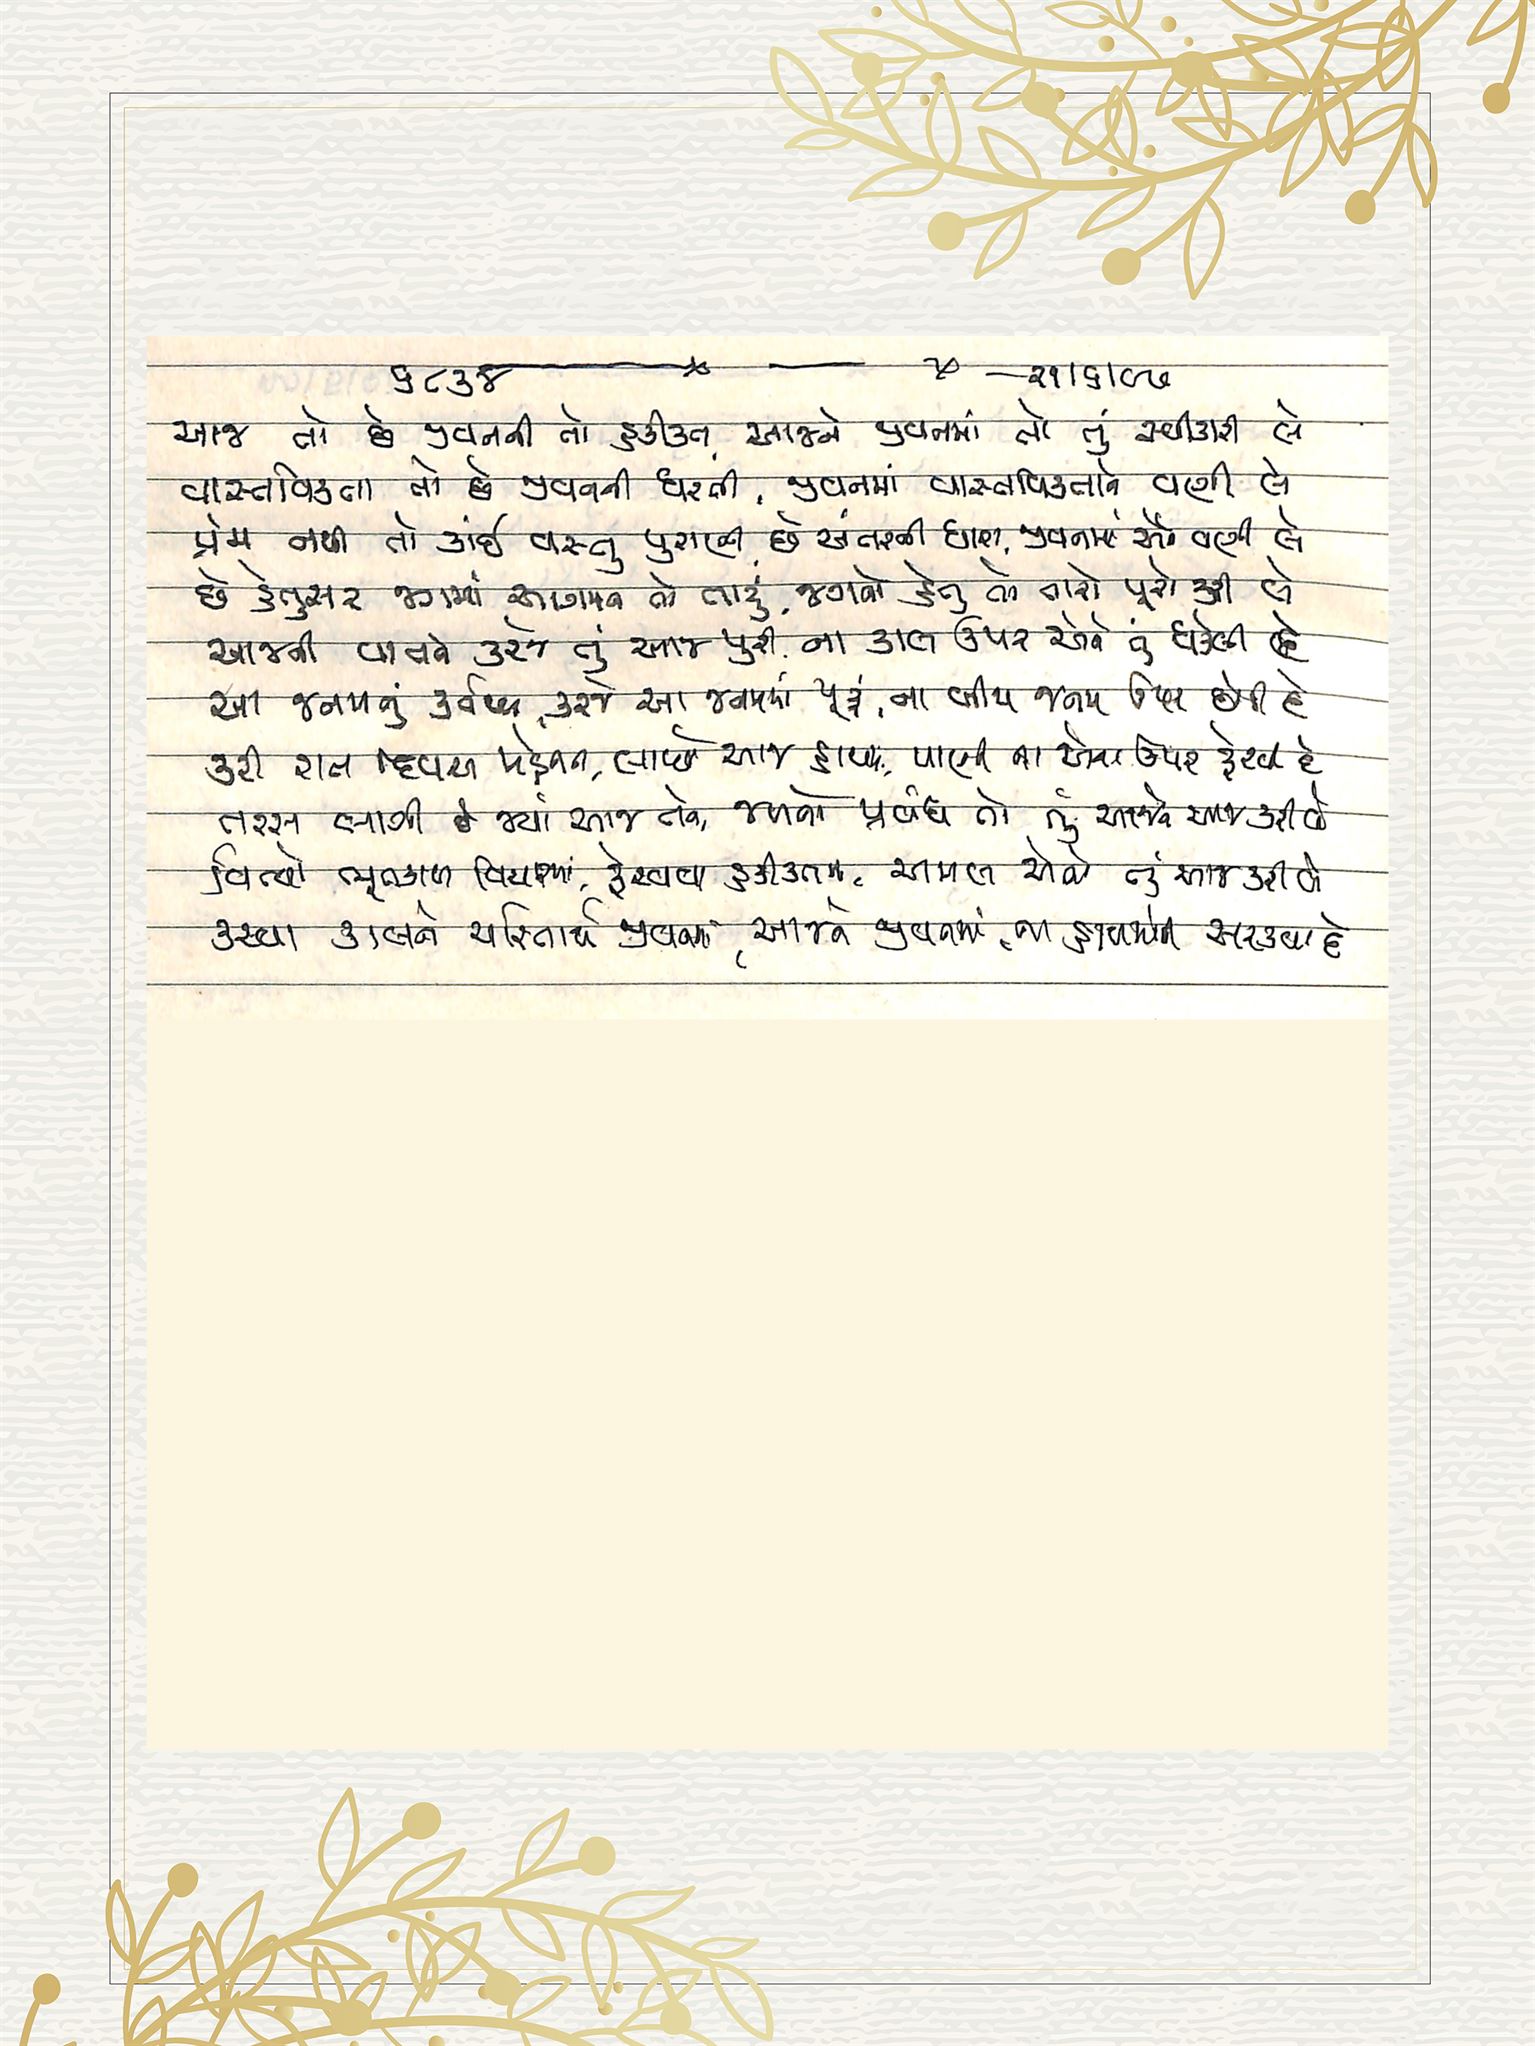 ૬૮૩૪ — ૨૧/૬/૯૭
આજ તો છે જીવનની તો હકીકત, આજને જીવનમાં તો તું સ્વીકારી લે
વાસ્તવિકતા તો છે જીવનની ધરતી, જીવનમાં વાસ્તવિકતાને વણી લે
પ્રેમ નથી તો કાંઈ વસ્તુ પુરાણી છે અંતરની ધારા, જીવનમાં એને વણી લે
છે હેતુસર જગમાં આગમન તો તારું, જગનો હેતુ તો તારો પૂરો કરી લે
આજની વાતને કરજે તું આજ પુરી, ના કાલ ઉપર એને તું ધકેલી દે
આ જનમનું કર્તવ્ય, કરજે આ જનમમાં પૂરું, ના બીજા જનમ ઉપર છોડી દે
કરી રાત દિવસ મહેનત, લાવ્યો આજ હાથમાં, પાણી ના એના ઉપર ફેરવી દે
તરસ લાગી છે જ્યાં આજ તને, જળનો પ્રબંધ તો તું આજને આજ કરી લે
વિત્યો ભૂતકાળ વિચારમાં, ફેરવવા હકીકતમાં, અમલ એનો તું આજ કરી લે
કરવા કાલને ચરિતાર્થ જીવનમાં, આજને જીવનમાં, ના હાથમાંથી સરકવા દે